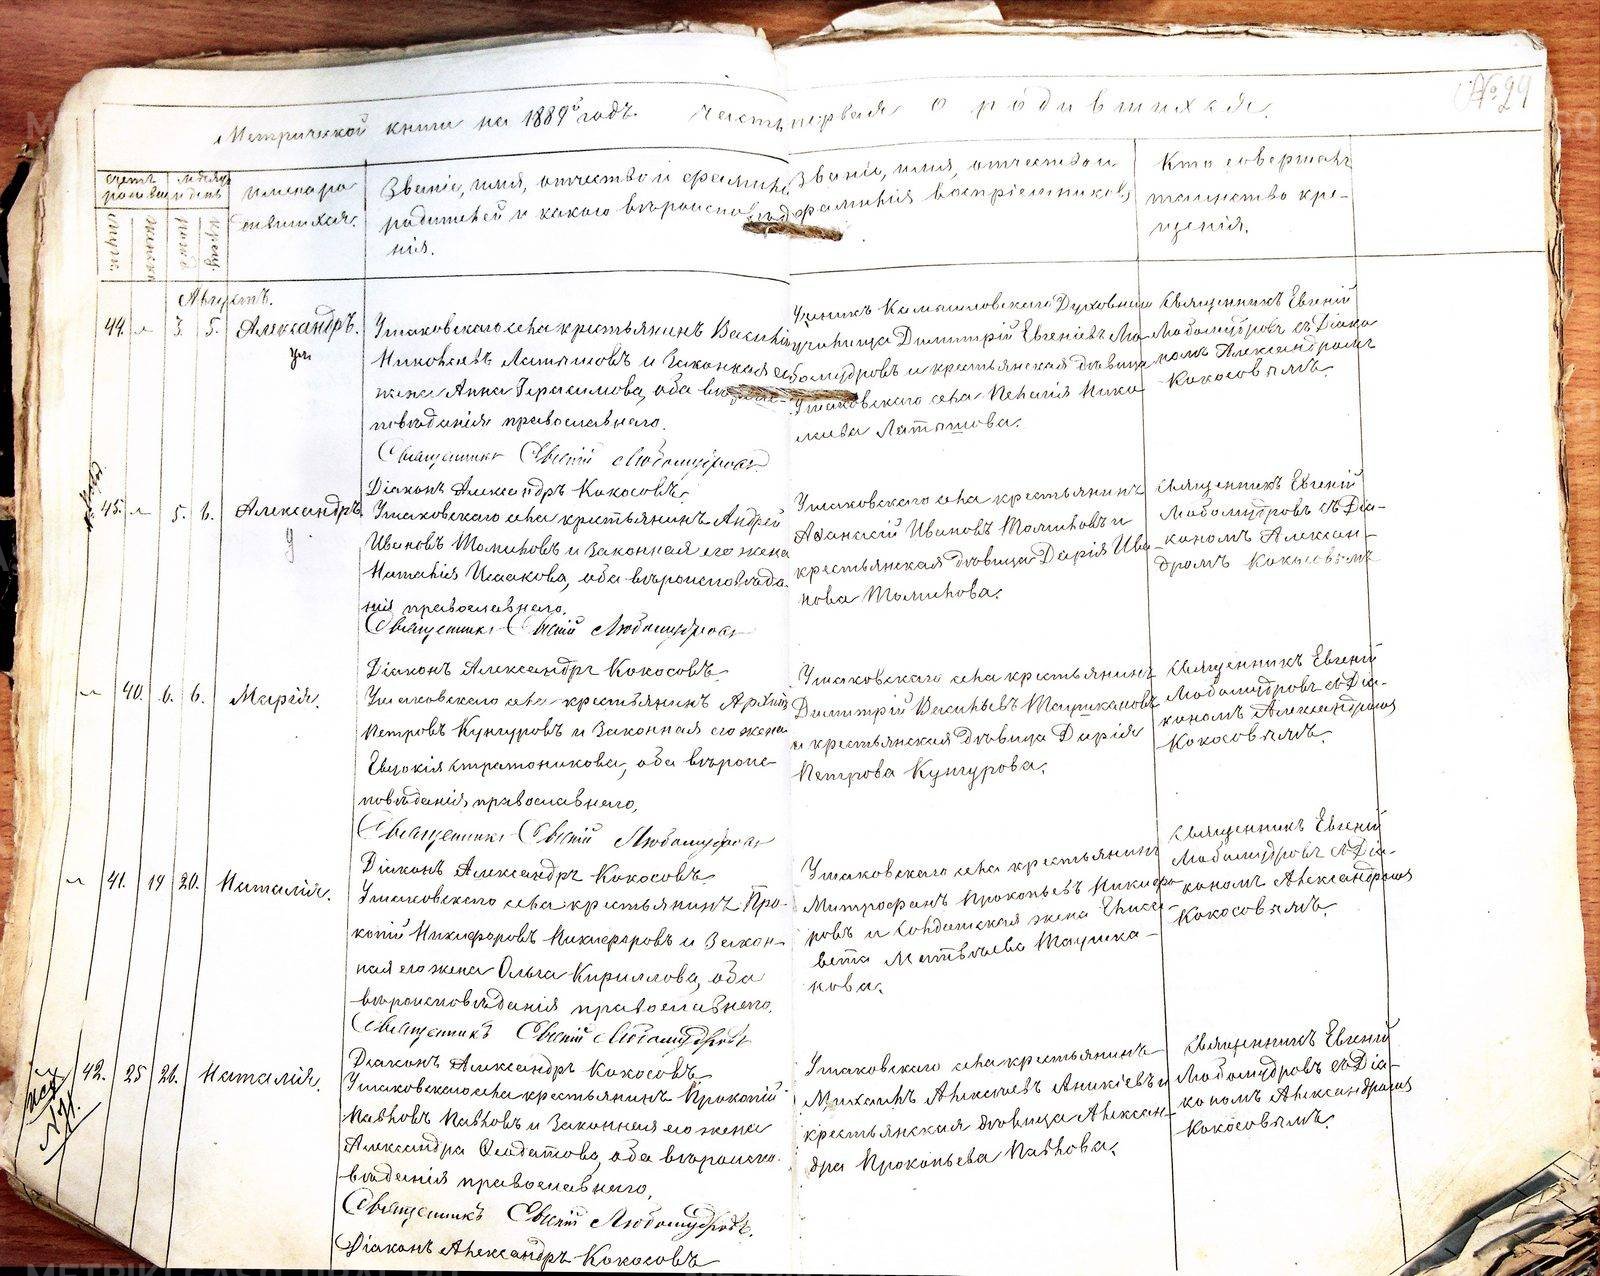 № 29
Метрической книги на 1889й годъ. Часть первая о родившихся.
счетъ родившихся
месяцъ и день
мужс.
женска
рожд.
крещ.
имена ро
дившихся.
Званіе, имя, отчество и фамилія
родителей и какого вѣроисповѣда
нія.
Званіе, имя, отчество и
фамилія воспріемниковъ
Кто совершалъ
таинство кре-
щенія.
Августъ.
44. „ 3. 5. Александръ.
ум.
Ушаковскаго села крестьянинъ Василій
Николаевъ Латышовъ и Законная его
жена Анна Герасимова, оба вѣроис-
повѣданія православнаго.
Священникъ Евгеній Любомудровъ
Діаконъ Александръ Кокосовъ
Ученикъ Камышловскаго Духовнаго
училища Димитрій Евгеніевъ Лю-
бомудровъ и крестьянская дѣвица
Ушаковскаго села Пелагія Нико
лаева Латышова.
Священникъ Евгеній
Любомудровъ съ Діако
номъ Александромъ
Кокосовымъ.
45. „ 5. 6. Александръ.
у.
Ушаковскаго села крестьянинъ Андрей
Ивановъ Томиловъ и Законная его жена
Наталія Исаакова, оба вѣроисповѣда
нія православнаго.
Священникъ Евгеній Любомудровъ
Діаконъ Александръ Кокосовъ.
Ушаковскаго села крестьянинъ
Афанасій Ивановъ Томиловъ и
крестьянская дѣвица Дарія Ива
нова Томилова.
Священникъ Евгеній
Любомудровъ съ Діа-
кономъ Алексан-
дромъ Кокосовымъ
„ 40. 6. 6. Марія.
Ушаковскаго села крестьянинъ Архипъ
Петровъ Кунгуровъ и Законная его жена
Евдокія Стратоникова, оба вѣроис-
повѣданія православнаго,
Священникъ Евгеній Любомудровъ
Діаконъ Александръ Кокосовъ.
Ушаковскаго села крестьянинъ
Димитрій Васильевъ Таушкановъ
и крестьянская дѣвица Дарія
Петрова Кунгурова.
Священникъ Евгеній
Любомудровъ съ Діа-
кономъ Александромъ
Кокосовымъ.
„ 41. 19 20. Наталія.
Ушаковскаго села крестьянинъ Про-
копій Никифоровъ Никифоровъ и Закон-
ная его жена Ольга Кириллова, оба
вѣроисповѣданія православнаго.
Священникъ Евгеній Любомудровъ
Діаконъ Александръ Кокосовъ
Ушаковскаго села крестьянинъ
Митрофанъ Прокопьевъ Никифо
ровъ и Солдатская жена Елиса-
вета Матвѣева Таушка-
нова.
Священникъ Евгеній
Любомудровъ съ Діа-
кономъ Александромъ
Кокосовымъ.
42. 25 26. Наталія.
Ушаковскаго села крестьянинъ Прокопій
Павловъ Павловъ и Законная его жена
Александра Филатова, оба вѣроиспо-
вѣданія православнаго,
Священникъ Евгеній Любомудровъ.
Діаконъ Александръ Кокосовъ
Ушаковскаго села крестьянинъ
Михаилъ Алексѣевъ Аникіевъ и
крестьянская дѣвица Алексан-
дра Прокопьева Павлова.
Священникъ Евгеній
Любомудровъ съ Діа-
кономъ Александромъ
Кокосовымъ.